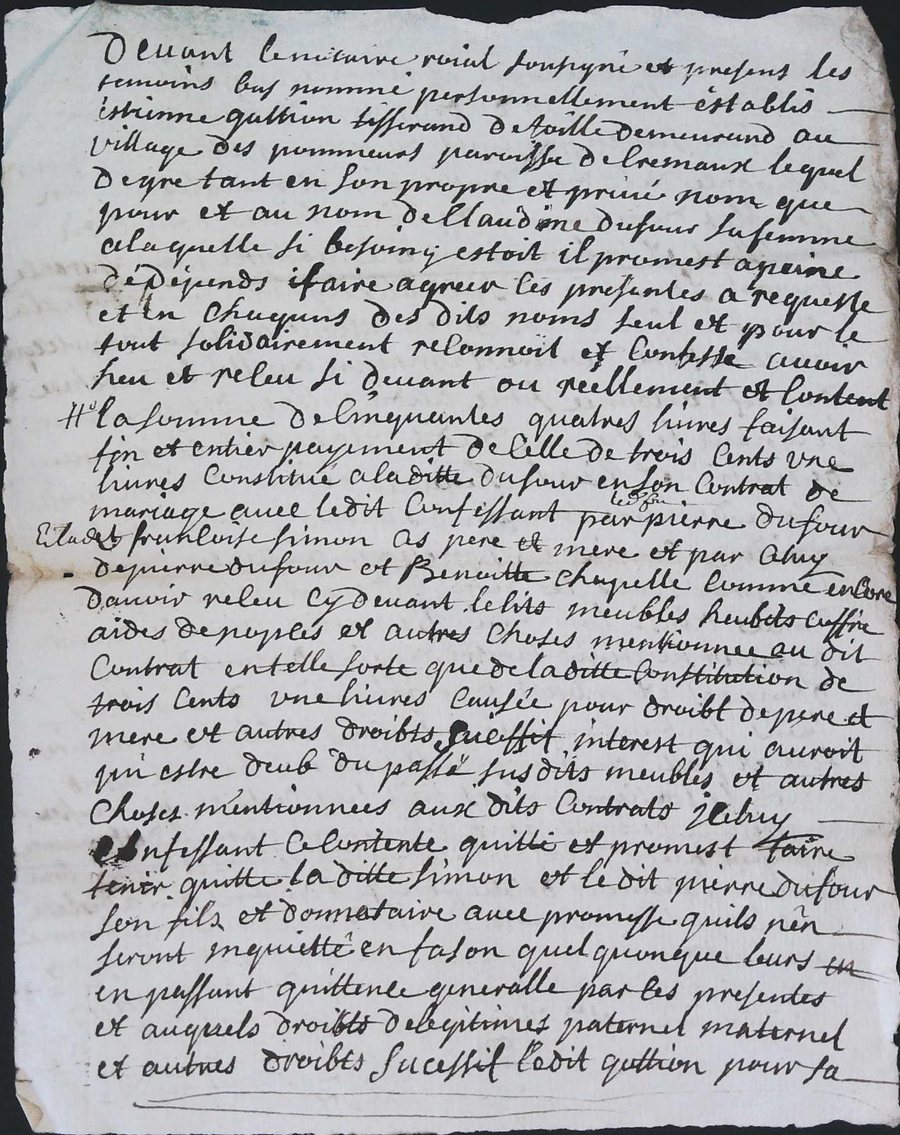 Devant le notaire roial soupigné et presens les
temoins bas nommé personnellement éstablis
éstienne guttion tisserand detoille demeurand au
village des pommeurs paroisse de Cremaux lequel
de gre tant en son propre et privé nom que
pour et au nom de Claudine dufour sa femme
a laquelle si besoing estoit il promest a peine
dé dépends faire agreer les presentes a requeste
et en chaquns des dits noms seul et pour le
tout solidairement reconnoit et confesse avoir
heu et receu si devant ou réellement et content
la somme de cinquantes quatres livres faisant
fin et entier payement de celle de trois cents une
livres constitué a la ditte dufour en son contrat de
mariage avec ledit confessant par pierre dufour
et francloise simon as pere et mere et par celuy
de pierre dufour et Benoitte chapelle comme encore
davoir receu cy devant le lits meubles heubits coffre
aides de nopces et autres choses mentionnee au dit
contrat en telle sorte que de la ditte constitution de
trois cents une livres causée pour droibt de pere et
mere et autres droibts sucessif interest qui auroit
pu estre deub du passé susdits meubles et autres
choses mentionnees aux dits contrats iceluy
confessant ce contente quitte et promest faire
tenir quitte la ditte simon et le dit pierre dufour
son fils et donnataire avec promesse quils n'en
seront inquietté en fason quelquonque leurs en
en passant quittence generalle par ces presentes
et auquels droibts de legitimes paternel maternel
et autres droibts sucessif ledit guttion pour sa